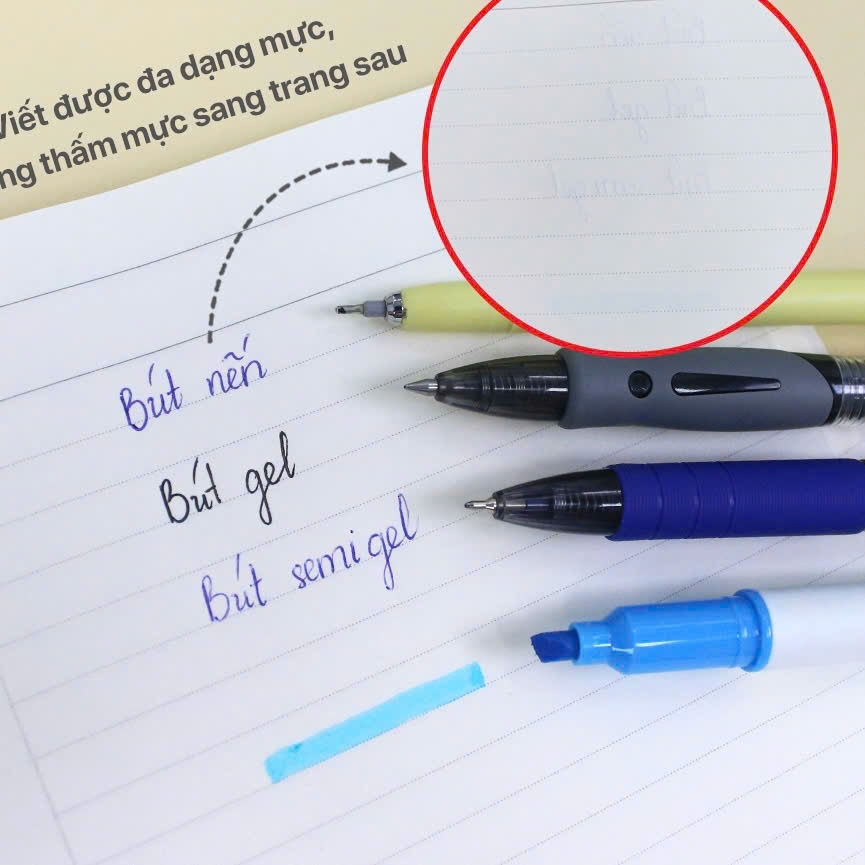 Viết được đa dạng mực,
thấm mực sang trang sau
Bút nến
Bút gel
Bút semi gel